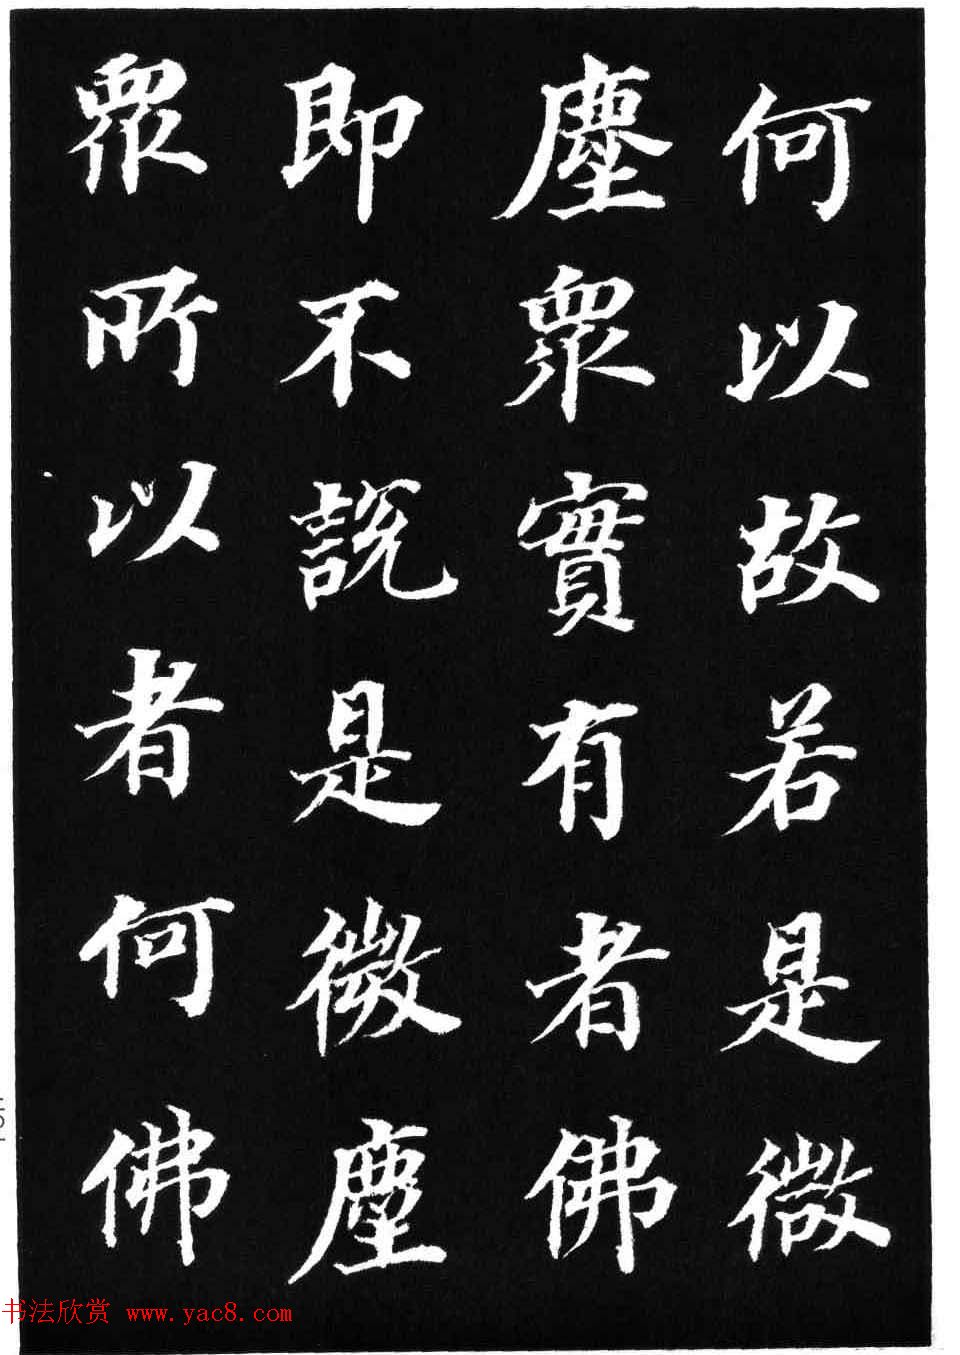 何以故若是微
塵眾實有者佛
即不說是微塵
眾所以者何佛
书法欣赏 www.yac8.com